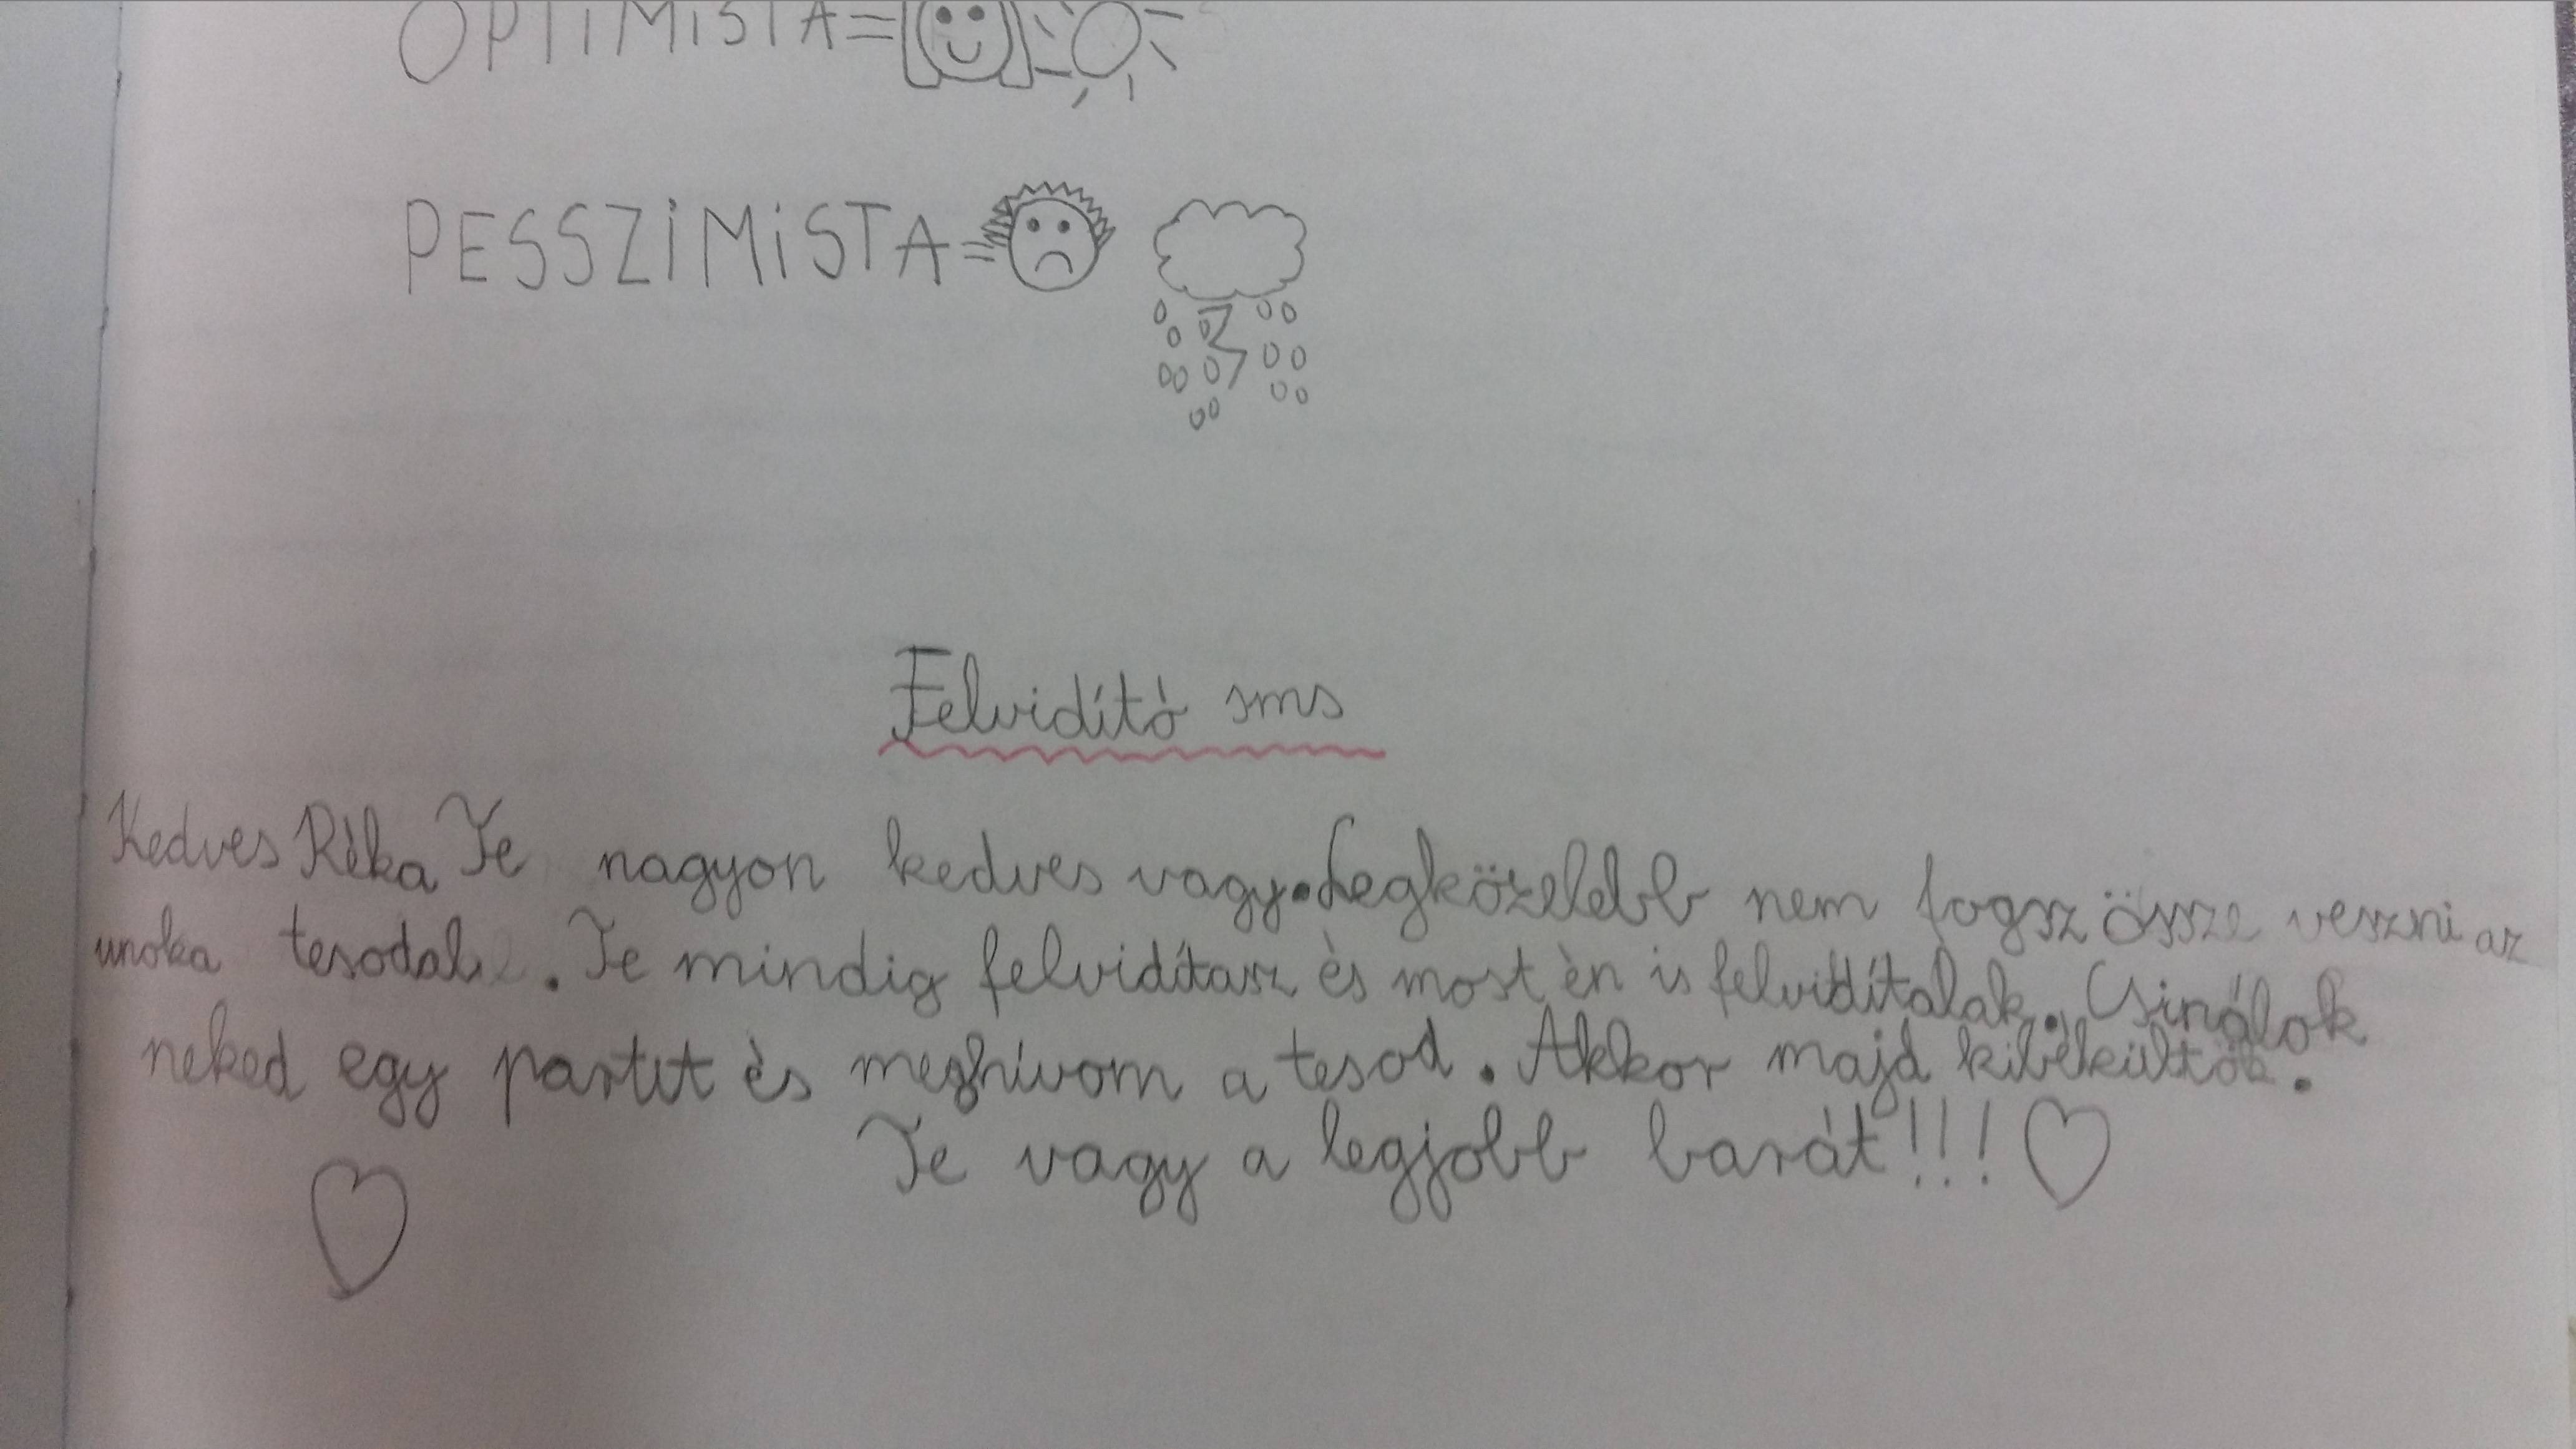 OPTIMISTA=
PESSZIMISTA=
Felvidító sms
Kedves Réka Te nagyon kedves vagy. Legközelebb nem fogsz össze veszni az
unoka tesodal. Te mindig felvidítasz és most én is felvidítalak. Csinálok
neked egy partit és meghívom a tesod. Akkor majd kibékültök.
Te vagy a legjobb barát!!!